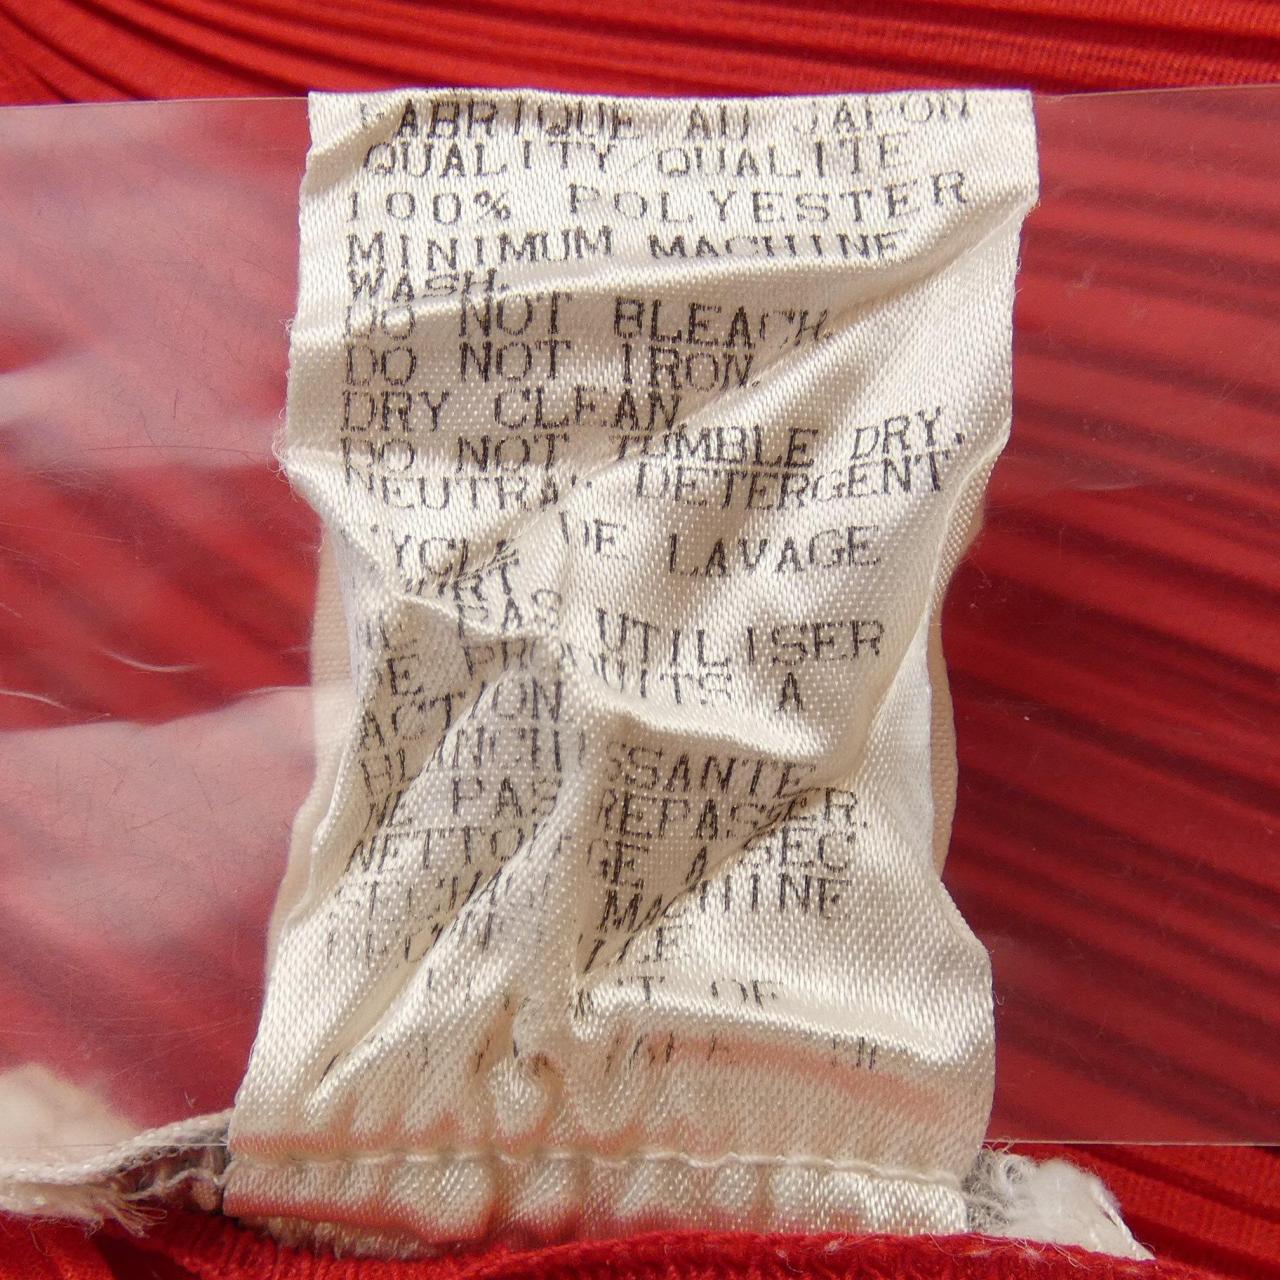 FABRIQUE AU JAPON
QUALITY/QUALITE
100% POLYESTER
MINIMUM MACHINE
WASH.
DO NOT BLEACH.
DO NOT IRON.
DRY CLEAN.
DO NOT TUMBLE DRY.
NEUTRAL DETERGENT.
CYCLE DE LAVAGE
COURT.
NE PAS UTILISER
DE PRODUITS A
ACTION
BLANCHISSANTE
NE PAS REPASSER.
NETTOYAGE A SEC
MACHINE